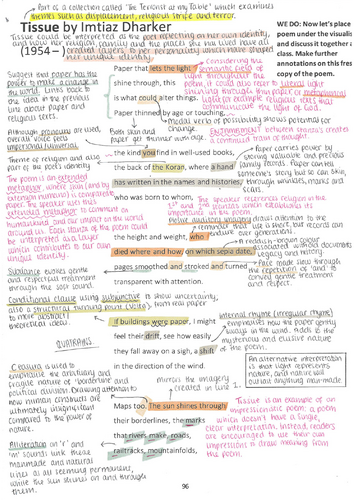 Part of a collection called 'The Terrorist at my Table' which examines
themes such as displacement, religious strife and terror.
Tissue by Imtiaz Dharker
(1954 – )
WE DO: Now let's place
poem under the visualis
and discuss it together a
class. Make further
annotations on this fres
copy of the poem.
Tissue could be interpreted as the poet reflecting on her own identity,
and how her religion, family and the places she has lived have all
created layers to her personality which make
her unique identity.
Paper that lets the light
shine through, this
is what could alter things.
Paper thinned by age or touching,
Suggests that paper has the
power to make a change in
the world. Links back to
the idea in the previous
line about paper and
religious texts.
Considering the
semantic field of
light throughout the
poem, it could also refer to literal light
shining through thin paper or metaphorical
light for example religious texts that
communicate the light of God.
modal verb of possibility shows potential for
change.
Although pronouns are used,
overall voice feels
impersonal/universal
Both skin and
paper get thinner with age.
Enjambment between stanzas creates
a continued train of thought
the kind you find in well-used books,
the back of the Koran, where a hand
has written in the names and histories,
who was born to whom,
Theme of religion and also
part of the poet's identity
Paper carries power by
storing valuable and precious
family records. Paper carries
someone's story but so can skin,
through wrinkles, marks and
scars.
The poem is an extended
metaphor, where skin (and by
extension humans) is compared to
paper. The speaker uses this
extended metaphor to comment on
humankind and our impact on the world
around us. Each stanza of the poem could
be interpreted as a layer
which contributes to our own
unique identity.
The speaker references Religion in the
1st and 2nd stanzas which establishes its
importance in the poem.
draws attention to the
reminder that life is short, but records can
endure over generations.
the height and weight, who
died where and how, on which sepia date,
pages smoothed and stroked and turned
transparent with attention.
A reddish-brown colour
associated with old documents
Legacy and history.
Pace made slow through
the repetition of 'and' to
convey gentle treatment
and respect.
Sibilance evokes gentle
and respectful treatment
through the soft sound.
Conditional clause using subjunctive to show uncertainty,
also a structural turning point (volta) from real paper
to more abstract
theoretical ideas.
If buildings were paper, I might
feel their drift, see how easily
they fall away on a sigh, a shift
in the direction of the wind.
QUATRAINS
internal rhyme (irregular rhyme)
emphasises how the paper gently
sways in the wind. Adds to the
mysterious and elusive nature
of the poem.
An alternative interpretation
is that light represents
nature, and nature will
outlast anything man-made
Caesura is used to
emphasise the arbitrary and
fragile nature of borderline and
political division. Drawing attention to
how human constructs are
ultimately insignificant
compared to the power of
nature.
mirrors the imagery
created in line 1.
Maps too. The sun shines through
their borderlines, the marks
that rivers make, roads,
railtracks, mountainfolds,
Tissue is an example of an
impressionistic poem: a poem
which doesn't have a single,
clear interpretation, instead readers
are encouraged to use their own
impressions to draw meaning from
the poem.
Alliteration on 'r' and
'm' sounds link these
manmade and natural
lines as all seeming permanent,
while the sun shines on and through
them.
96